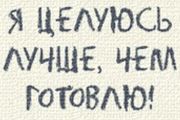 Я ЦЕЛУЮСЬ
ЛУЧШЕ, ЧЕМ
ГОТОВЛЮ!